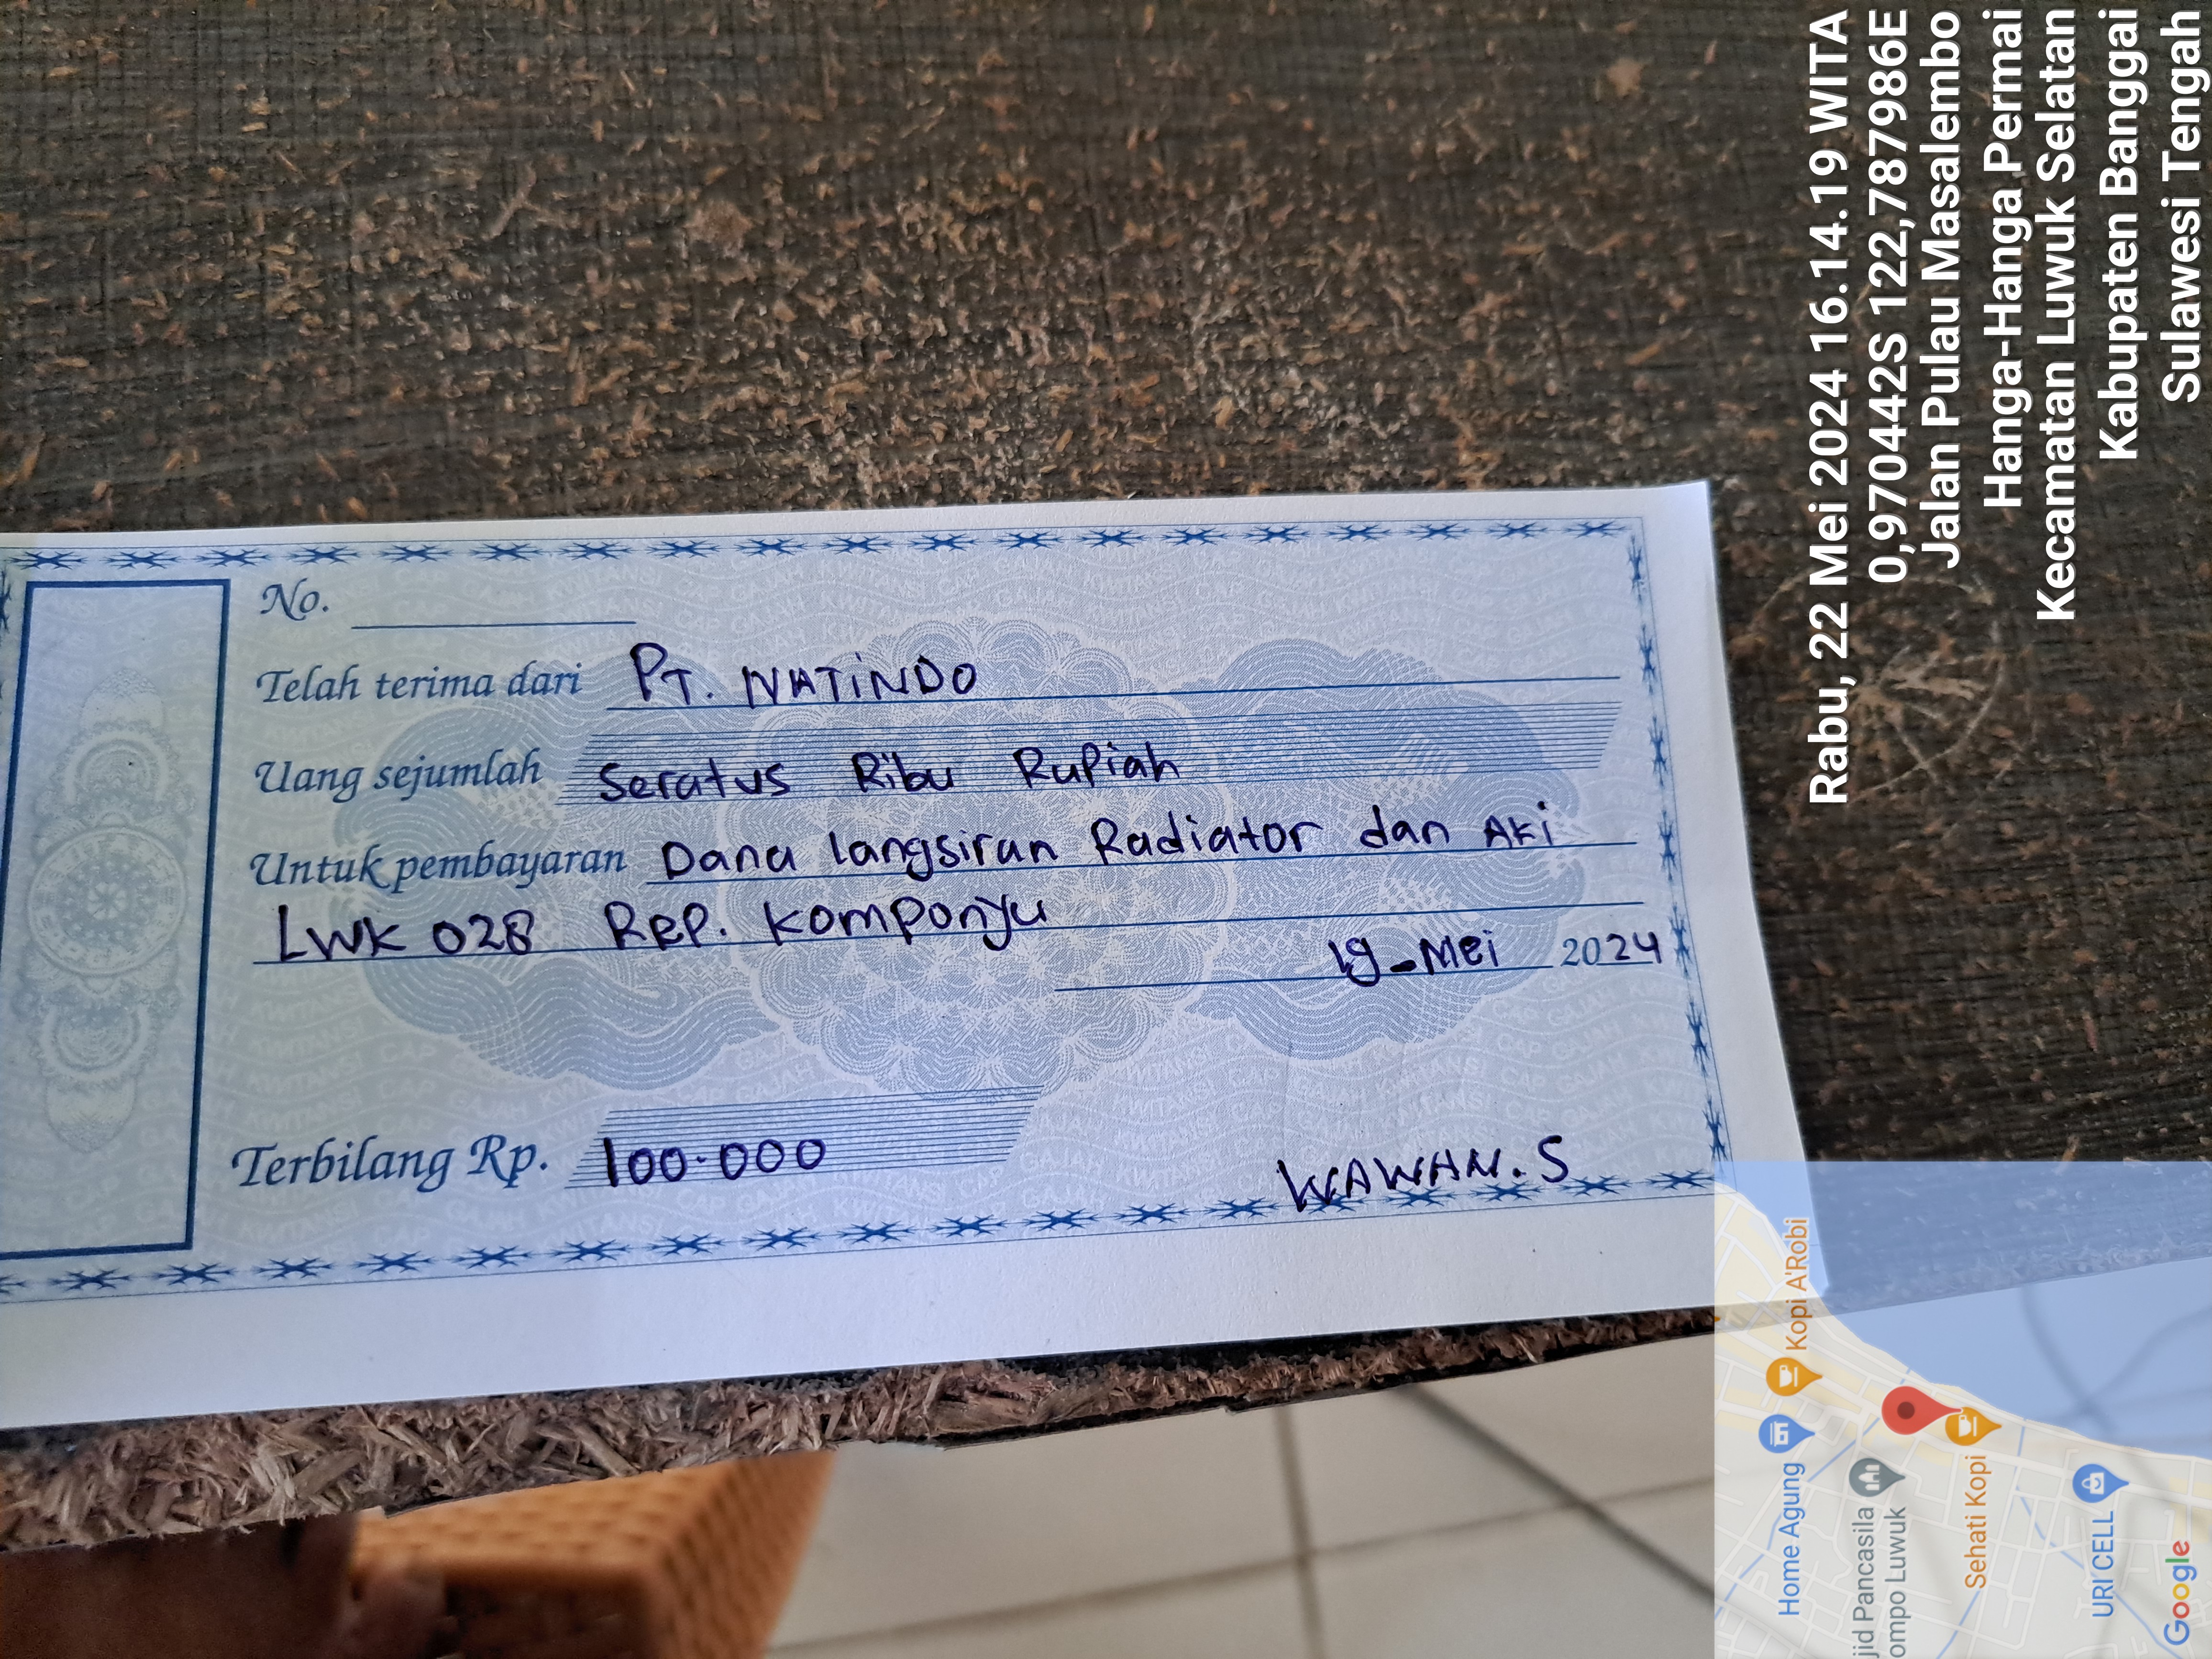 No.
Telah terima dari PT. NATINDO
Uang sejumlah Seratus Ribu Rupiah
Untuk pembayaran Dana langsiran Radiator dan AKi
LWK 028 Rep. Komponyu
19 - Mei 2024
Terbilang Rp. 100.000
WAWAN. S
Rabu, 22 Mei 2024 16.14.19 WITA
0,970442S 122,7879986E
Jalan Pulau Masalembo
Hanga-Hanga Permai
Kecamatan Luwuk Selatan
Kabupaten Banggai
Sulawesi Tengah
Kopi A'Robi
Home Agung
jid Pancasila
ompo Luwuk
Sehati Kopi
URI CELL
Google